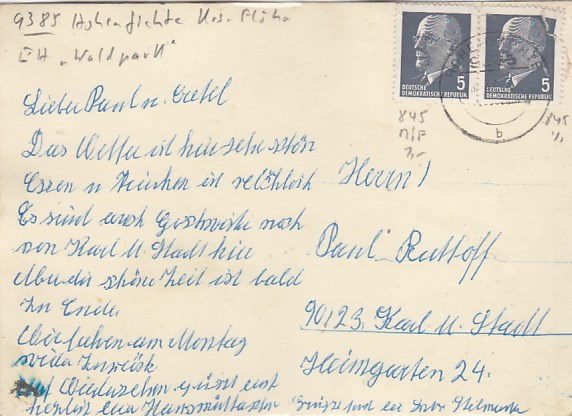 9385 Hohenfichte Krs. Flöha
EH „Waldpark"
DEUTSCHE
DEMOKRATISCHE REPUBLIK
5
DEUTSCHE
DEMOKRATISCHE REPUBLIK
5
b
845
845
Lieber Paul u. Gretel
Das Wetter ist hier sehr schön
Essen u Trinken ist reichlich
Es sind auch Geschwister noch
von Karl M. Stadt hier
Aber die schöne Zeit ist bald
zu Ende.
Wir fahren am Montag
wieder zurück
Auf Wiedersehen grüsst euch
herzlich eure
Herrn
Paul Ruttoff
90123 Karl M. Stadt
Heimgarten 24.